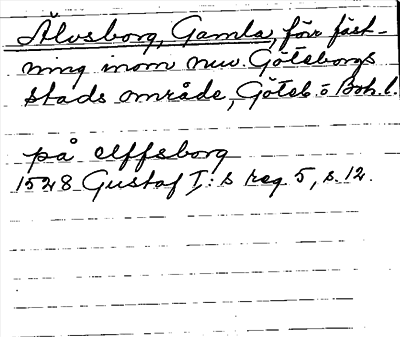 Älvsborg, Gamla, förr fäst-
ning inom nuv. Göteborgs
stads område, Göteb o Boh. l.
på elffsborg
1528 Gustaf I:s reg. 5, s. 12.